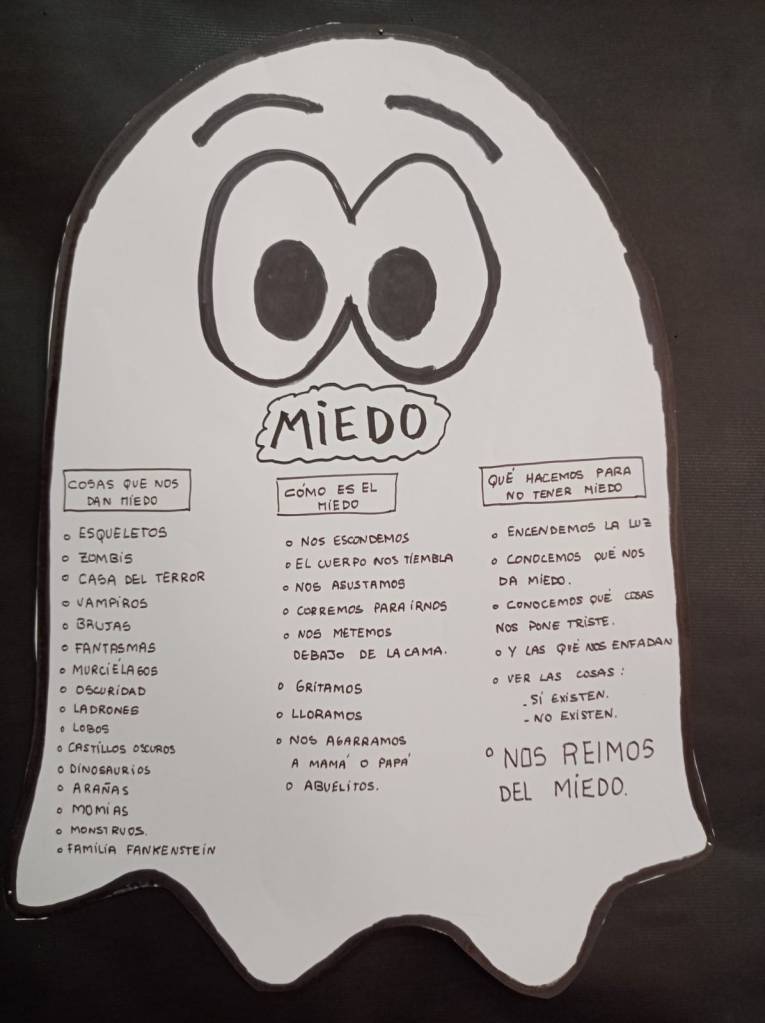 MIEDO
COSAS QUE NOS
DAN MIEDO
ESQUELETOS
ZOMBIS
CASA DEL TERROR
VAMPIROS
BRUJAS
FANTASMAS
MURCIÉLAGOS
OSCURIDAD
LADRONES
LOBOS
CASTILLOS OSCUROS
DINOSAURIOS
ARAÑAS
MOMIAS
MONSTRUOS.
FAMILIA FANKENSTEIN
CÓMO ES EL
MIEDO
NOS ESCONDEMOS
EL CUERPO NOS TIEMBLA
NOS ASUSTAMOS
CORREMOS PARA IRNOS
NOS METEMOS
DEBAJO DE LA CAMA.
GRITAMOS
LLORAMOS
NOS AGARRAMOS
A MAMÁ O PAPÁ
ABUELITOS.
QUÉ HACEMOS PARA
NO TENER MIEDO
ENCENDEMOS LA LUZ
CONOCEMOS QUÉ NOS
DA MIEDO.
CONOCEMOS QUÉ COSAS
NOS PONE TRISTE.
Y LAS QUÉ NOS ENFADAN
VER LAS COSAS:
- SÍ EXISTEN.
- NO EXISTEN.
NOS REIMOS
DEL MIEDO.